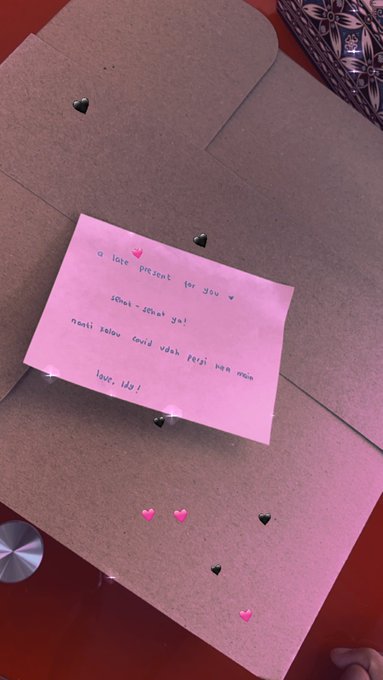 a late present for you ♥
sehat - sehat ya!
nanti kalau covid udah pergi kita main
love, Idy!